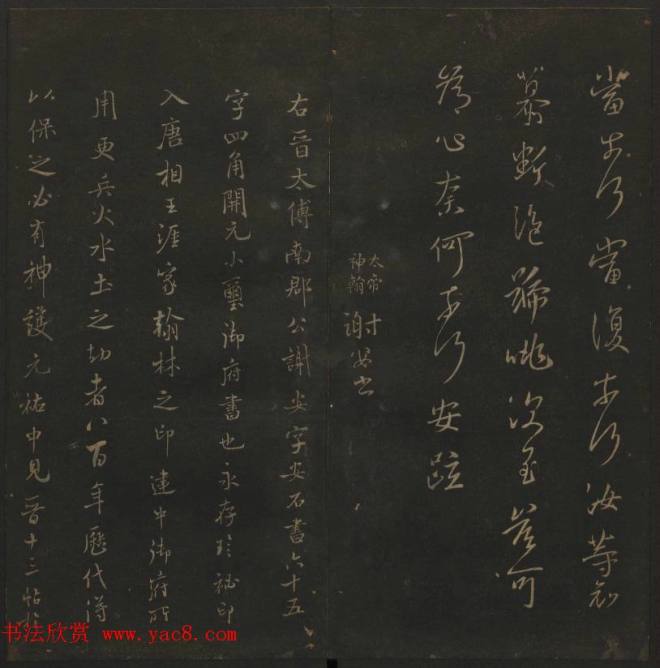 當奈何當復奈何汝等哀
慕斷絕號咷深至豈可
為心奈何奈何安疏
神翰
謝安書
右晉太傅南郡公謝安字安石書六十五
字四角開元小璽御府書也永存珍秘印
入唐相王涯家翰林之印建中御府所
用更兵火水土之劫者八百年歷代得
以保之必有神護元祐中見晉十三帖於
书法欣赏 www.yac8.com